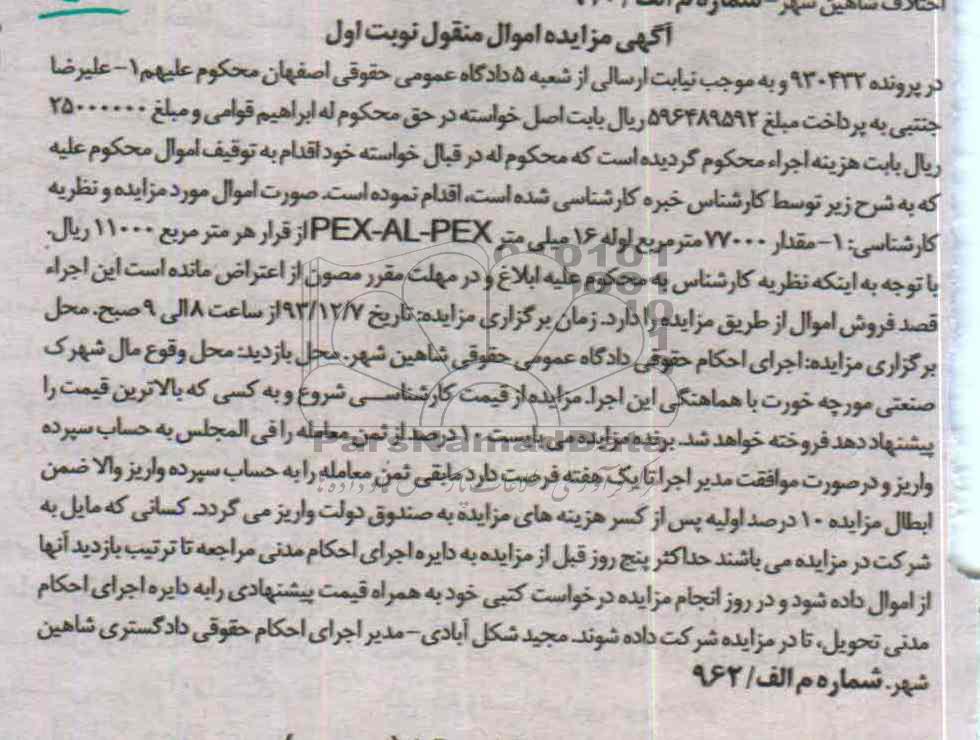 اختلاف شاهین شهر - شماره م الف /
آگهی مزایده اموال منقول نوبت اول
در پرونده ۹۳۰۴۳۲ و به موجب نیابت ارسالی از شعبه ۵ دادگاه عمومی حقوقی اصفهان محکوم علیهم ۱- علیرضا
جنتبی به پرداخت مبلغ ۵۹۶۴۸۹۵۹۲ ریال بابت اصل خواسته در حق محکوم له ابراهیم قوامی و مبلغ ۲۵۰۰۰۰۰۰
ریال بابت هزینه اجراء محکوم گردیده است که محکوم له در قبال خواسته خود اقدام به توقیف اموال محکوم علیه
که به شرح زیر توسط کارشناس خبره کارشناسی شده است، اقدام نموده است. صورت اموال مورد مزایده و نظریه
کارشناسی: ۱- مقدار ۷۷۰۰۰ متر مربع لوله ۱۶ میلی متر PEX-AL-PEX از قرار هر متر مربع ۱۱۰۰۰ ریال.
با توجه به اینکه نظریه کارشناس به محکوم علیه ابلاغ و در مهلت مقرر مصون از اعتراض مانده است این اجراء
قصد فروش اموال از طریق مزایده را دارد. زمان برگزاری مزایده: تاریخ ۹۳/۱۲/۷ از ساعت ۸ الی ۹ صبح. محل
برگزاری مزایده: اجرای احکام حقوقی دادگاه عمومی حقوقی شاهین شهر. محل بازدید: محل وقوع مال شهرک
صنعتی مورچه خورت با هماهنگی این اجرا. مزایده از قیمت کارشناسی شروع و به کسی که بالاترین قیمت را
پیشنهاد دهد فروخته خواهد شد. برنده مزایده می بایست ۱۰ درصد از ثمن معامله را فی المجلس به حساب سپرده
واریز و در صورت موافقت مدیر اجرا تا یک هفته فرصت دارد مابقی ثمن معامله را به حساب سپرده واریز والا ضمن
ابطال مزایده ۱۰ درصد اولیه پس از کسر هزینه های مزایده به صندوق دولت واریز می گردد. کسانی که مایل به
شرکت در مزایده می باشند حداکثر پنج روز قبل از مزایده به دایره اجرای احکام مدنی مراجعه تا ترتیب بازدید آنها
از اموال داده شود و در روز انجام مزایده درخواست کتبی خود به همراه قیمت پیشنهادی رابه دایره اجرای احکام
مدنی تحویل، تا در مزایده شرکت داده شوند. مجید شکل آبادی - مدیر اجرای احکام حقوقی دادگستری شاهین
شهر. شماره م الف/ ۹۶۲
ParsNamadData